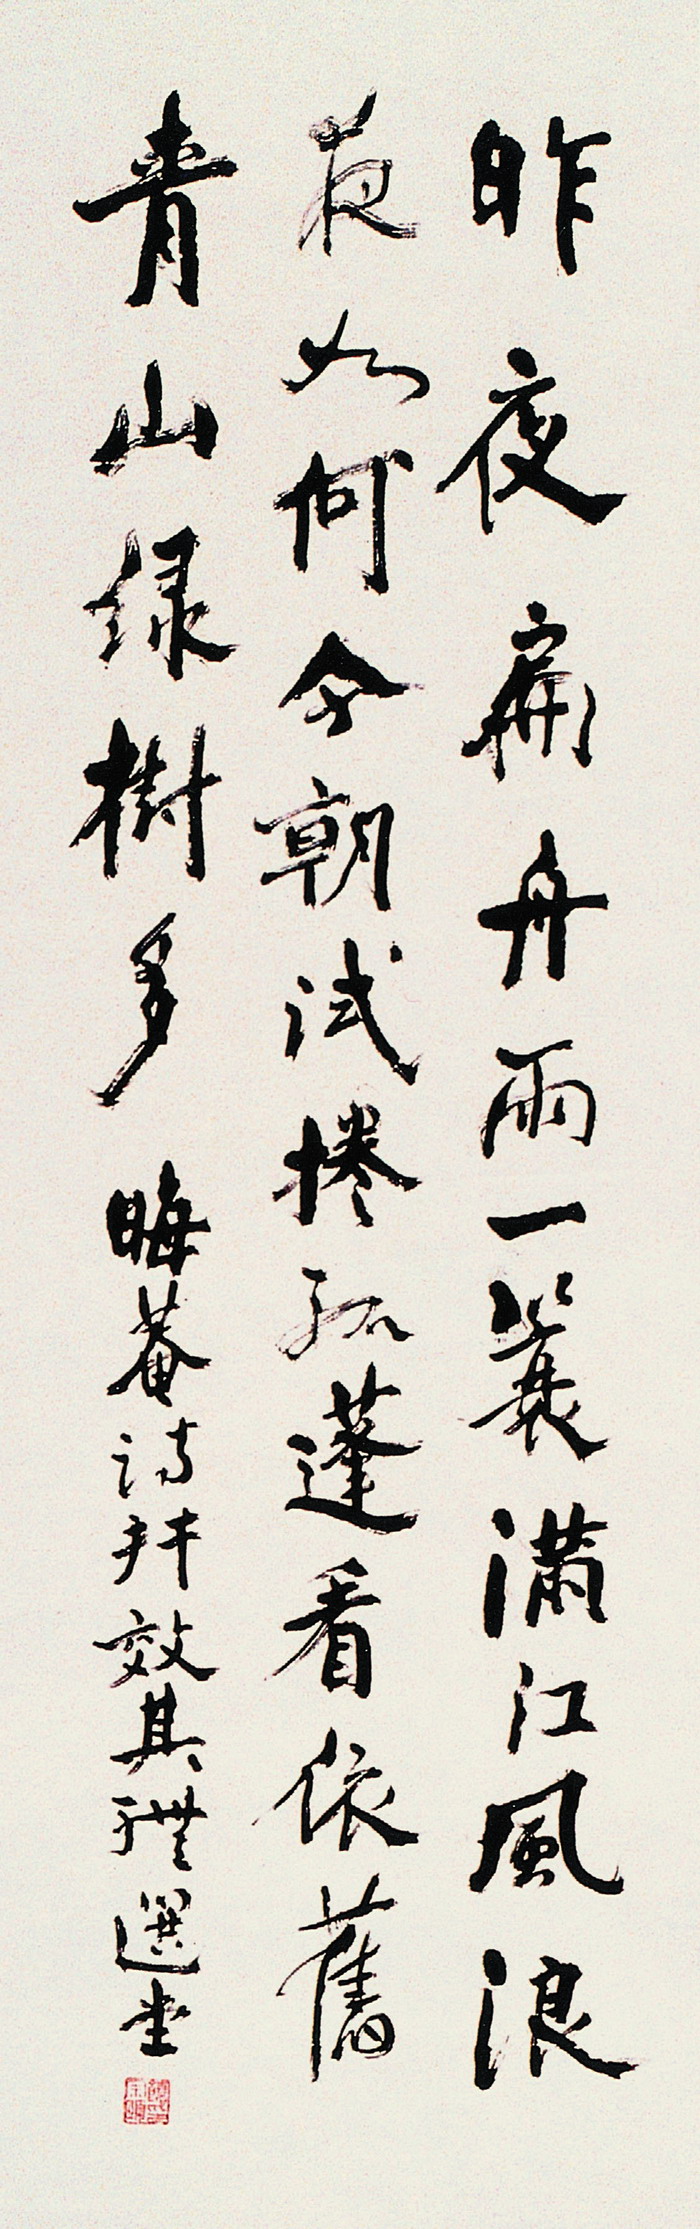 昨夜扁舟雨一蓑滿江風浪
夜如何今朝試捲孤蓬看依舊
青山綠樹多 晦菴詩拜效其體選堂